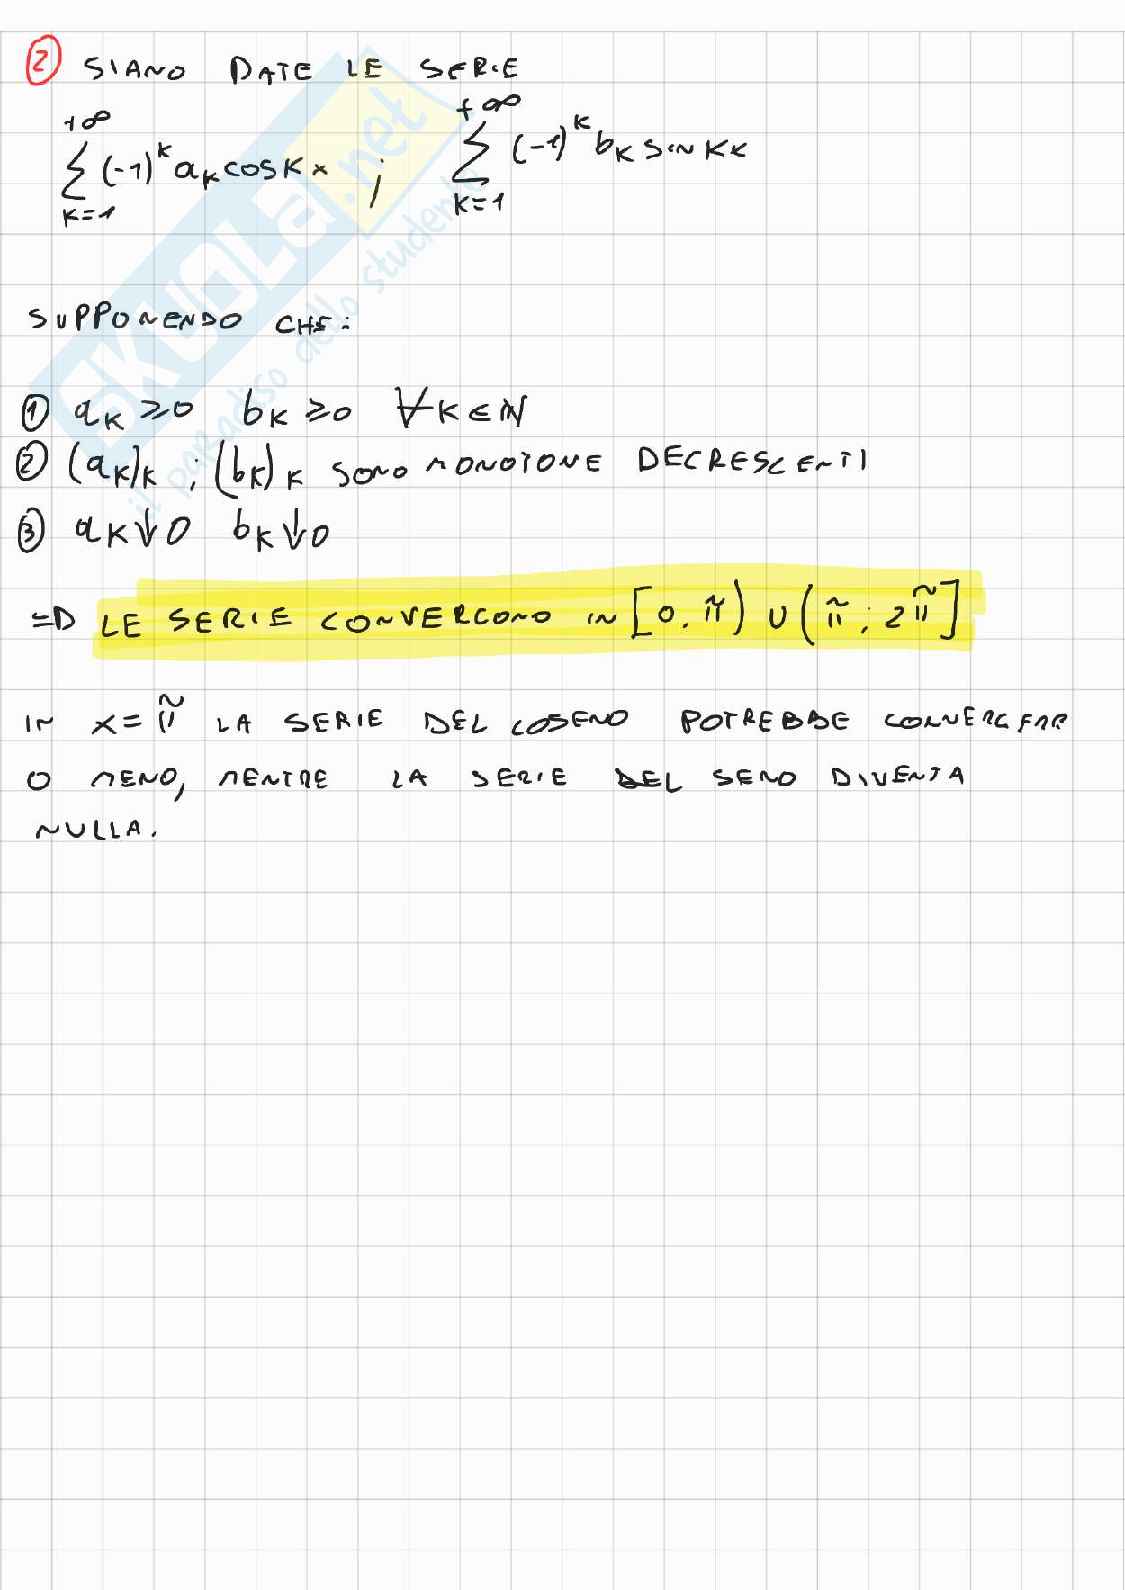 ② SIANO DATE LE SERIE
+∞ ∑ k=1 (-1)^k a_k cos kx ; +∞ ∑ k=1 (-1)^k b_k sin kx
SUPPONENDO CHE:
① a_k ≥ 0 b_k ≥ 0 ∀ k ∈ ℕ
② (a_k)_k ; (b_k)_k SONO MONOTONE DECRESCENTI
③ a_k ↓ 0 b_k ↓ 0
⇒ LE SERIE CONVERGONO IN [0, π) ∪ (π; 2π]
IN x = π LA SERIE DEL COSENO POTREBBE CONVERGERE
O MENO, MENTRE LA SERIE DEL SENO DIVENTA
NULLA.
SKUOLA.net
il paradiso dello studente